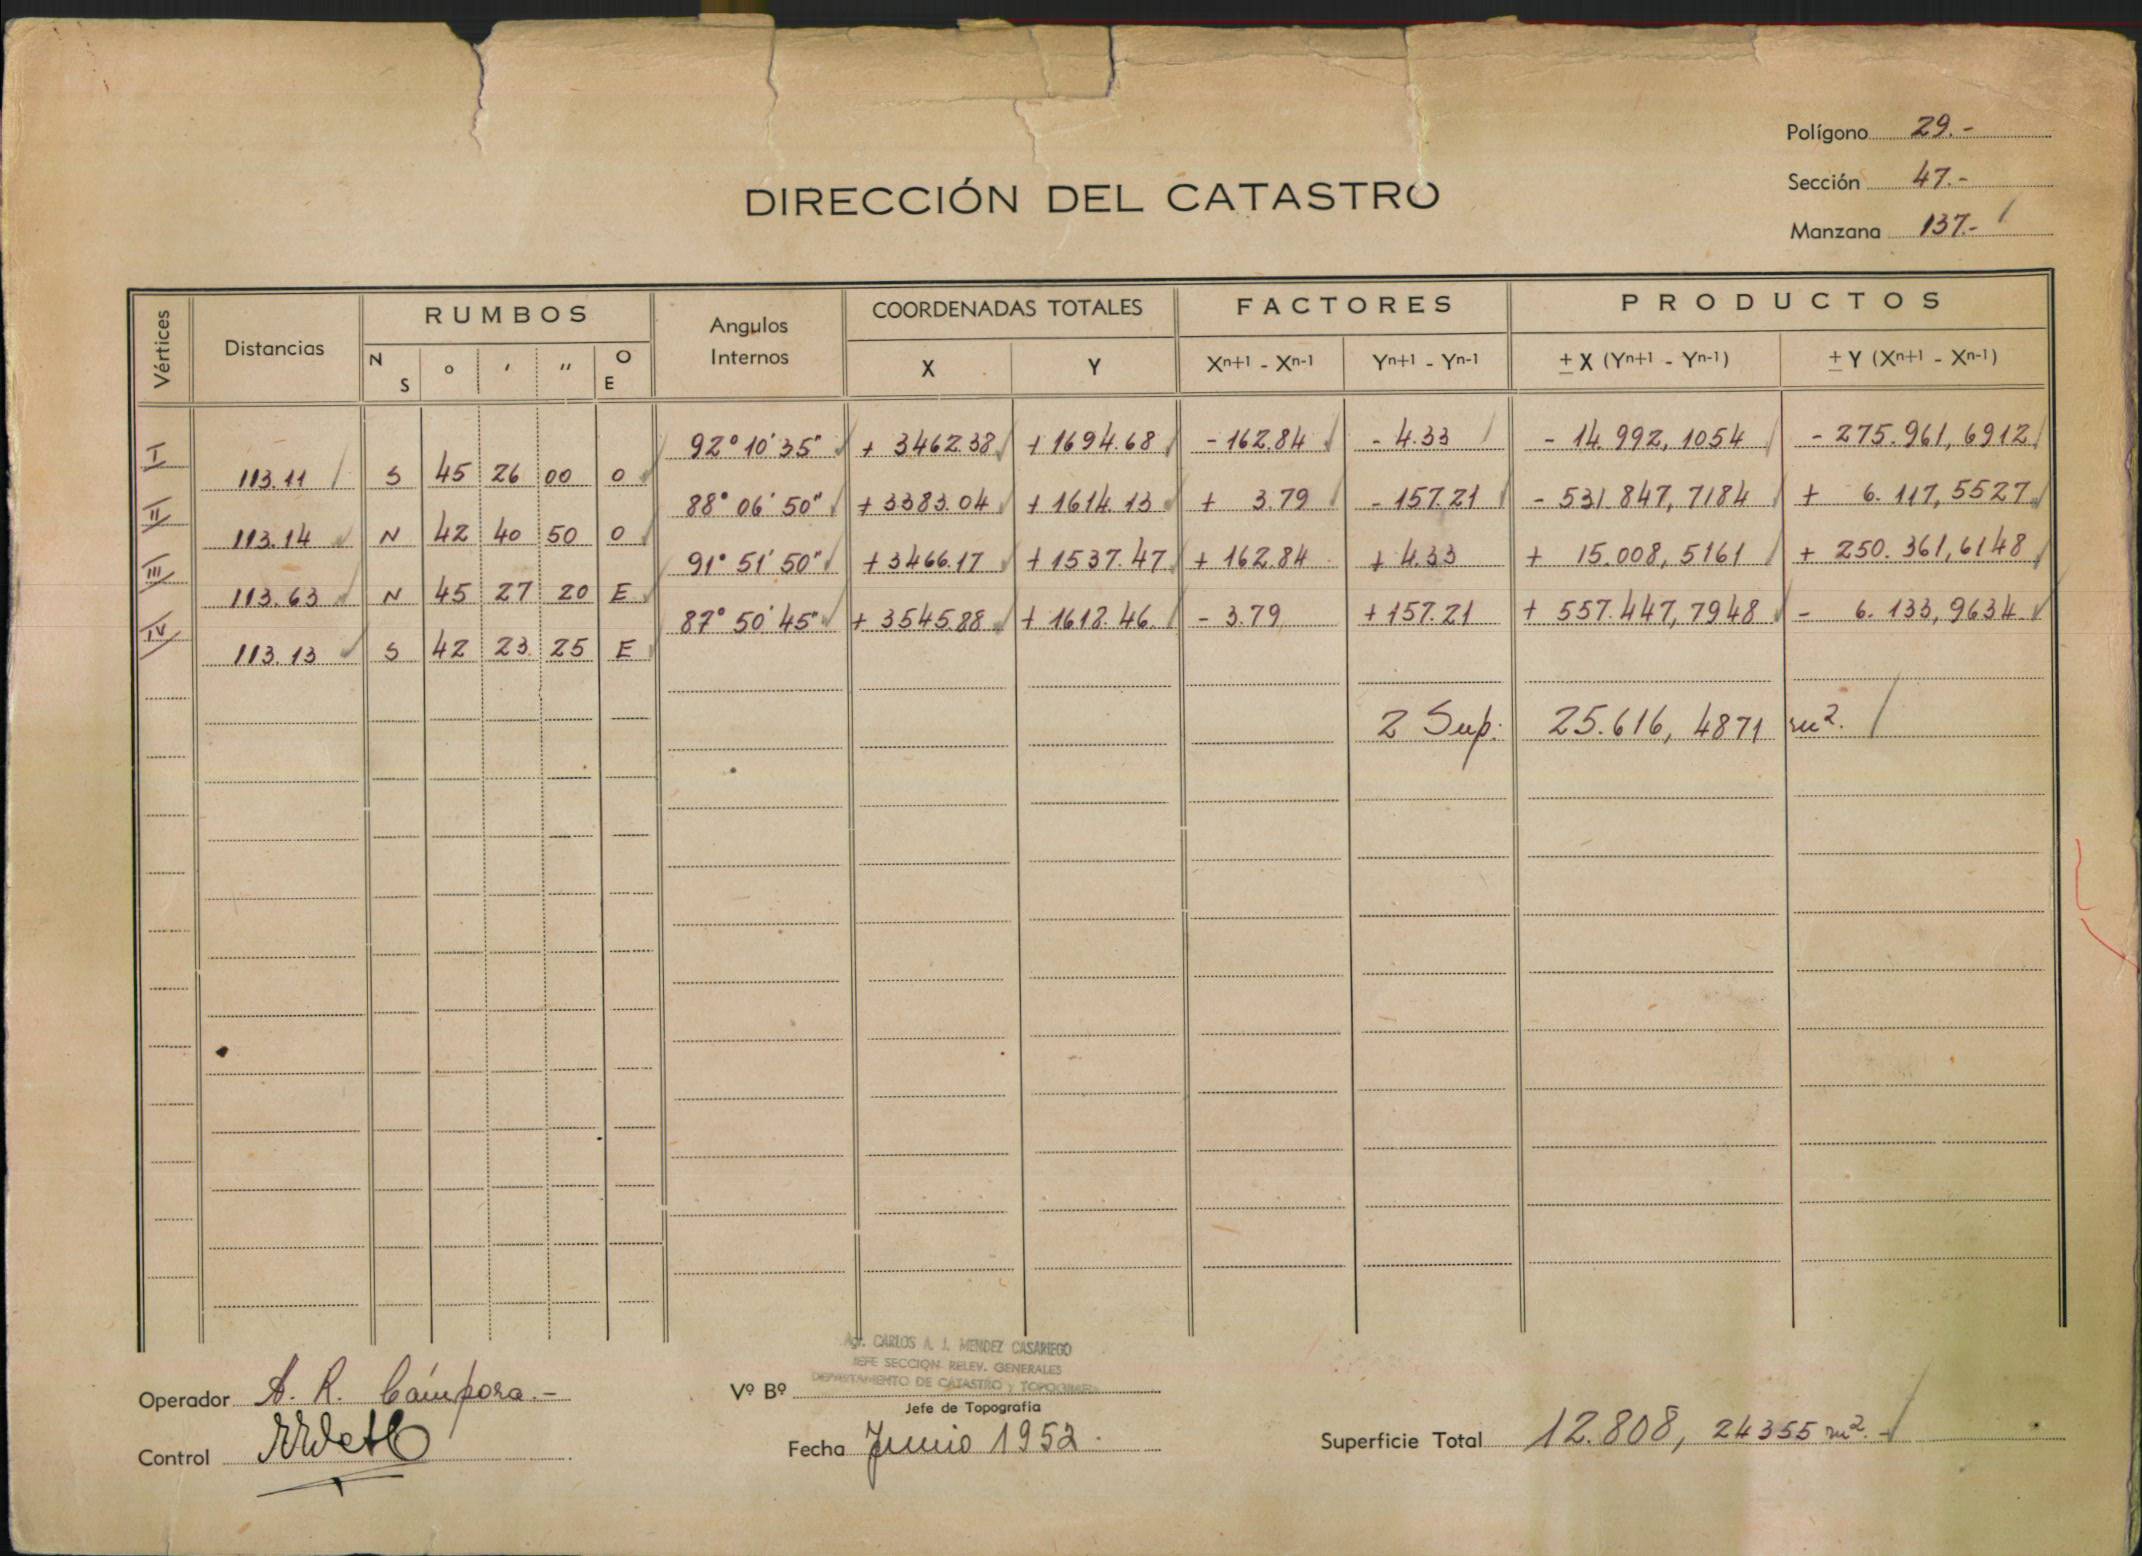 Polígono 29.-
Sección 47.-
Manzana 137.-
DIRECCIÓN DEL CATASTRO
Vértices Distancias RUMBOS Angulos Internos COORDENADAS TOTALES FACTORES PRODUCTOS
N S ° ' " O E X Y Xn+1 - Xn-1 Yn+1 - Yn-1 ± X (Yn+1 - Yn-1) ± Y (Xn+1 - Xn-1)
I 92° 10' 35" + 3462.38 + 1694.68 - 162.84 - 4.33 - 14.992,1054 - 275.961,6912
113.11 S 45 26 00 O
II 88° 06' 50" + 3383.04 + 1614.13 + 3.79 - 157.21 - 531.847,7184 + 6.117,5527
113.14 N 42 40 50 O
III 91° 51' 50" + 3466.17 + 1537.47 + 162.84 + 4.33 + 15.008,5161 + 250.361,6148
113.63 N 45 27 20 E
IV 87° 50' 45" + 3545.88 + 1618.46. - 3.79 + 157.21 + 557.447,7948 - 6.133,9634
113.13 S 42 23 25 E
2 Sup: 25.616, 4871 m².
Agr. CARLOS A. J. MENDEZ CASARIEGO
JEFE SECCION RELEV. GENERALES
DEPARTAMENTO DE CATASTRO y TOPOGRAFIA
Operador A. R. Cámpora.-
Vº Bº
Jefe de Topografía
Control
Fecha Junio 1952.
Superficie Total 12.808, 24355 m².-